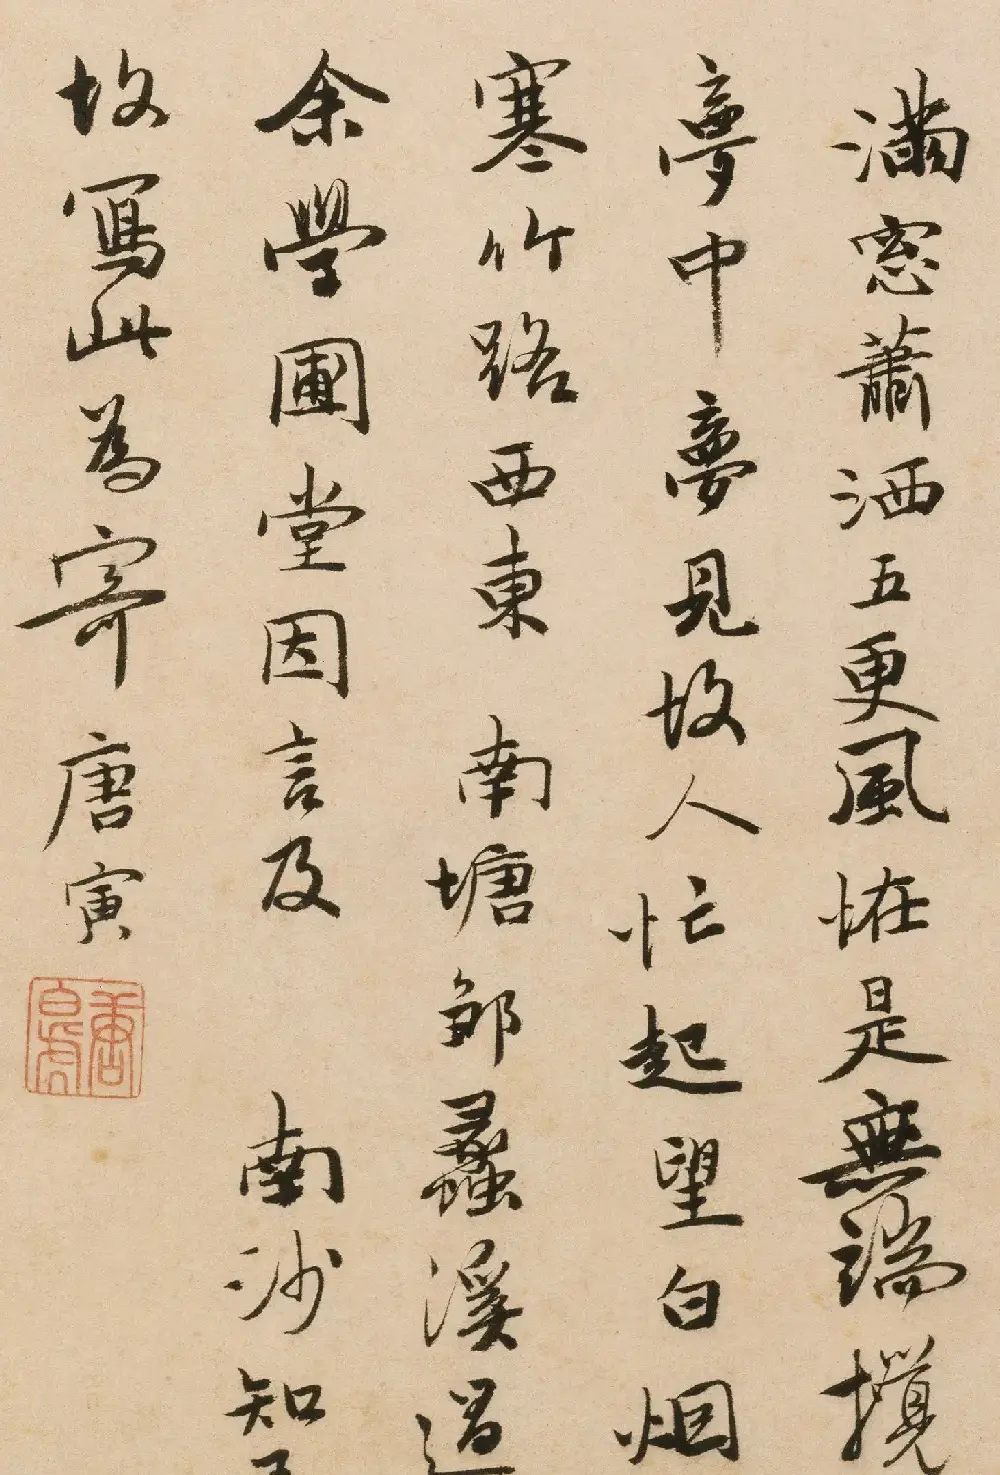 滿窓蕭洒五更風恠是無端攪
夢中夢見故人忙起望白烟
寒竹路西東 南塘鄒蠡溪過
余學圃堂因言及 南沙知
故寫此為寄唐寅
唐寅